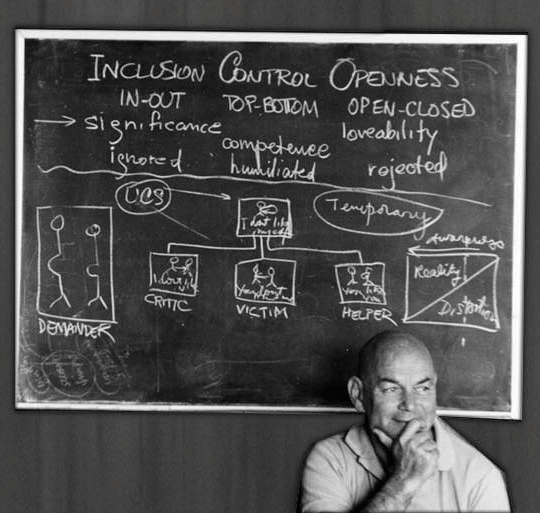 INCLUSION CONTROL OPENNESS
IN-OUT TOP-BOTTOM OPEN-CLOSED
significance competence loveability
ignored humiliated rejected
UCS
Temporary
I dont like myself
awareness
Reality
You like you
CRITIC
VICTIM
HELPER
DEMANDER